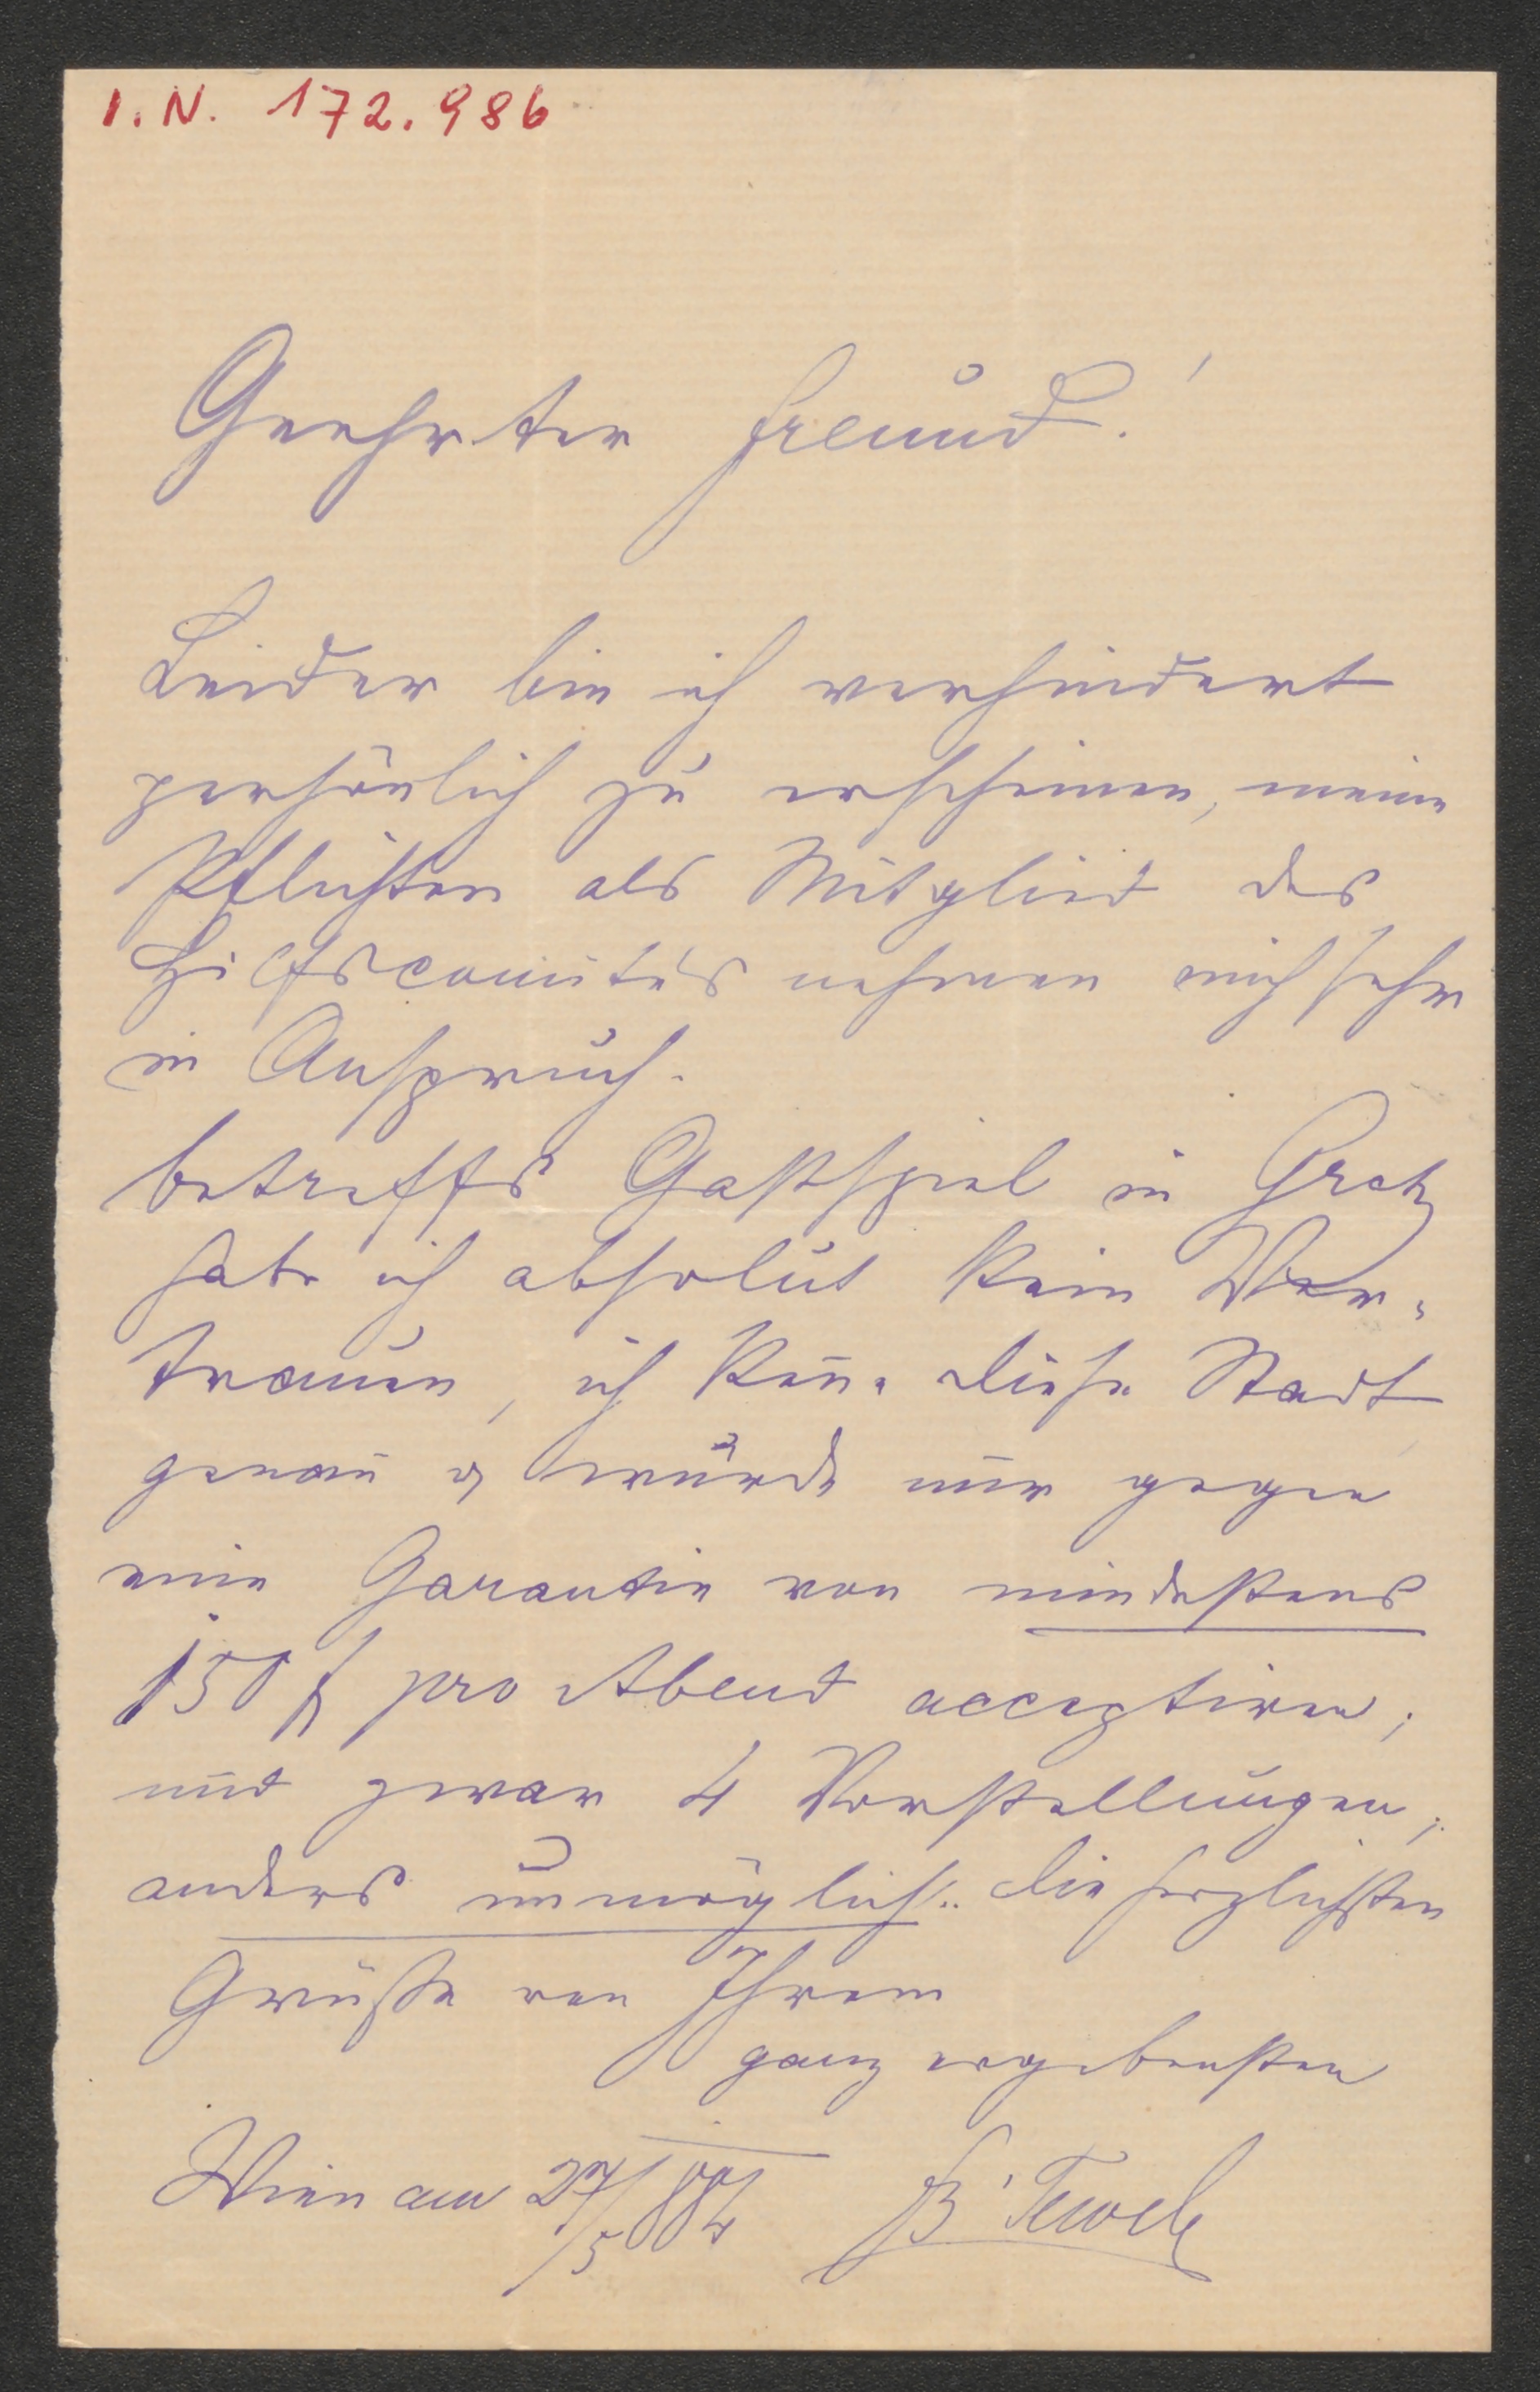 I.N. 172.986
Geehrter Freund!
Leider bin ich verhindert
persönlich zu erscheinen, meine
Pflichten als Mitglied des
Hilfscomités nehmen mich sehr
in Anspruch.
betreffs Gastspiel in Gratz
habe ich absolut kein Ver-
trauen, ich kenne diese Stadt
genau & würde nur gegen
eine Garantie von mindestens
150 f pro Abend acceptiren,
und zwar 4 Vorstellungen,
anders unmöglich. Die herzlichsten
Grüße von Ihrem
ganz ergebensten
Wien am 27/5 884 Tewele